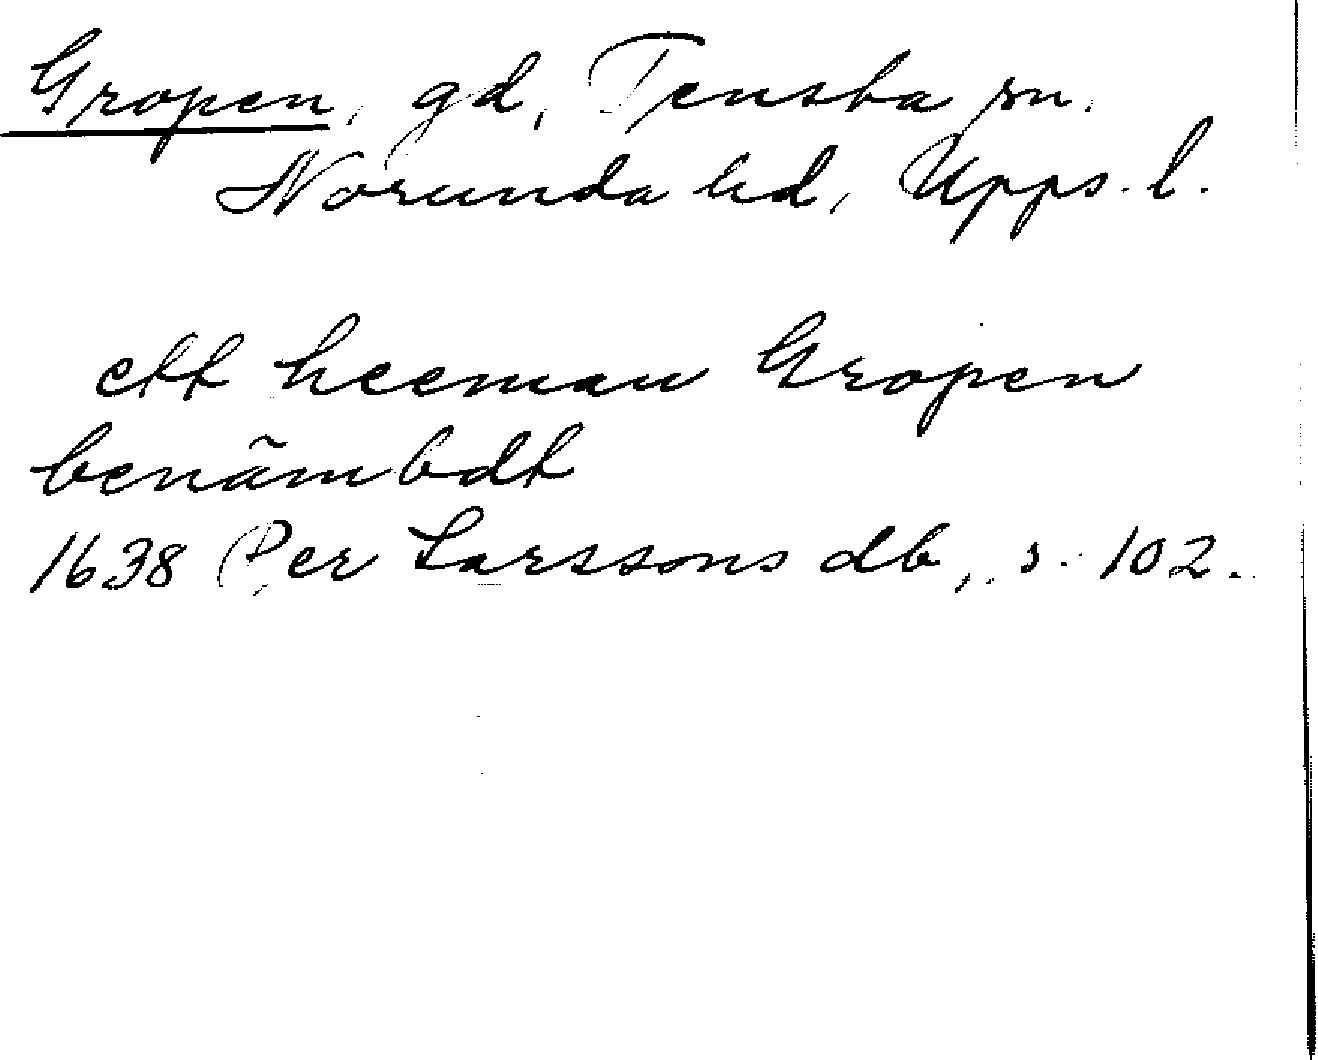 Gropen, gd, Tensta sn.
Norunda hd, Upps. l.
ett heeman Gropen
benämbdt
1638 Per Larssons db, s. 102.